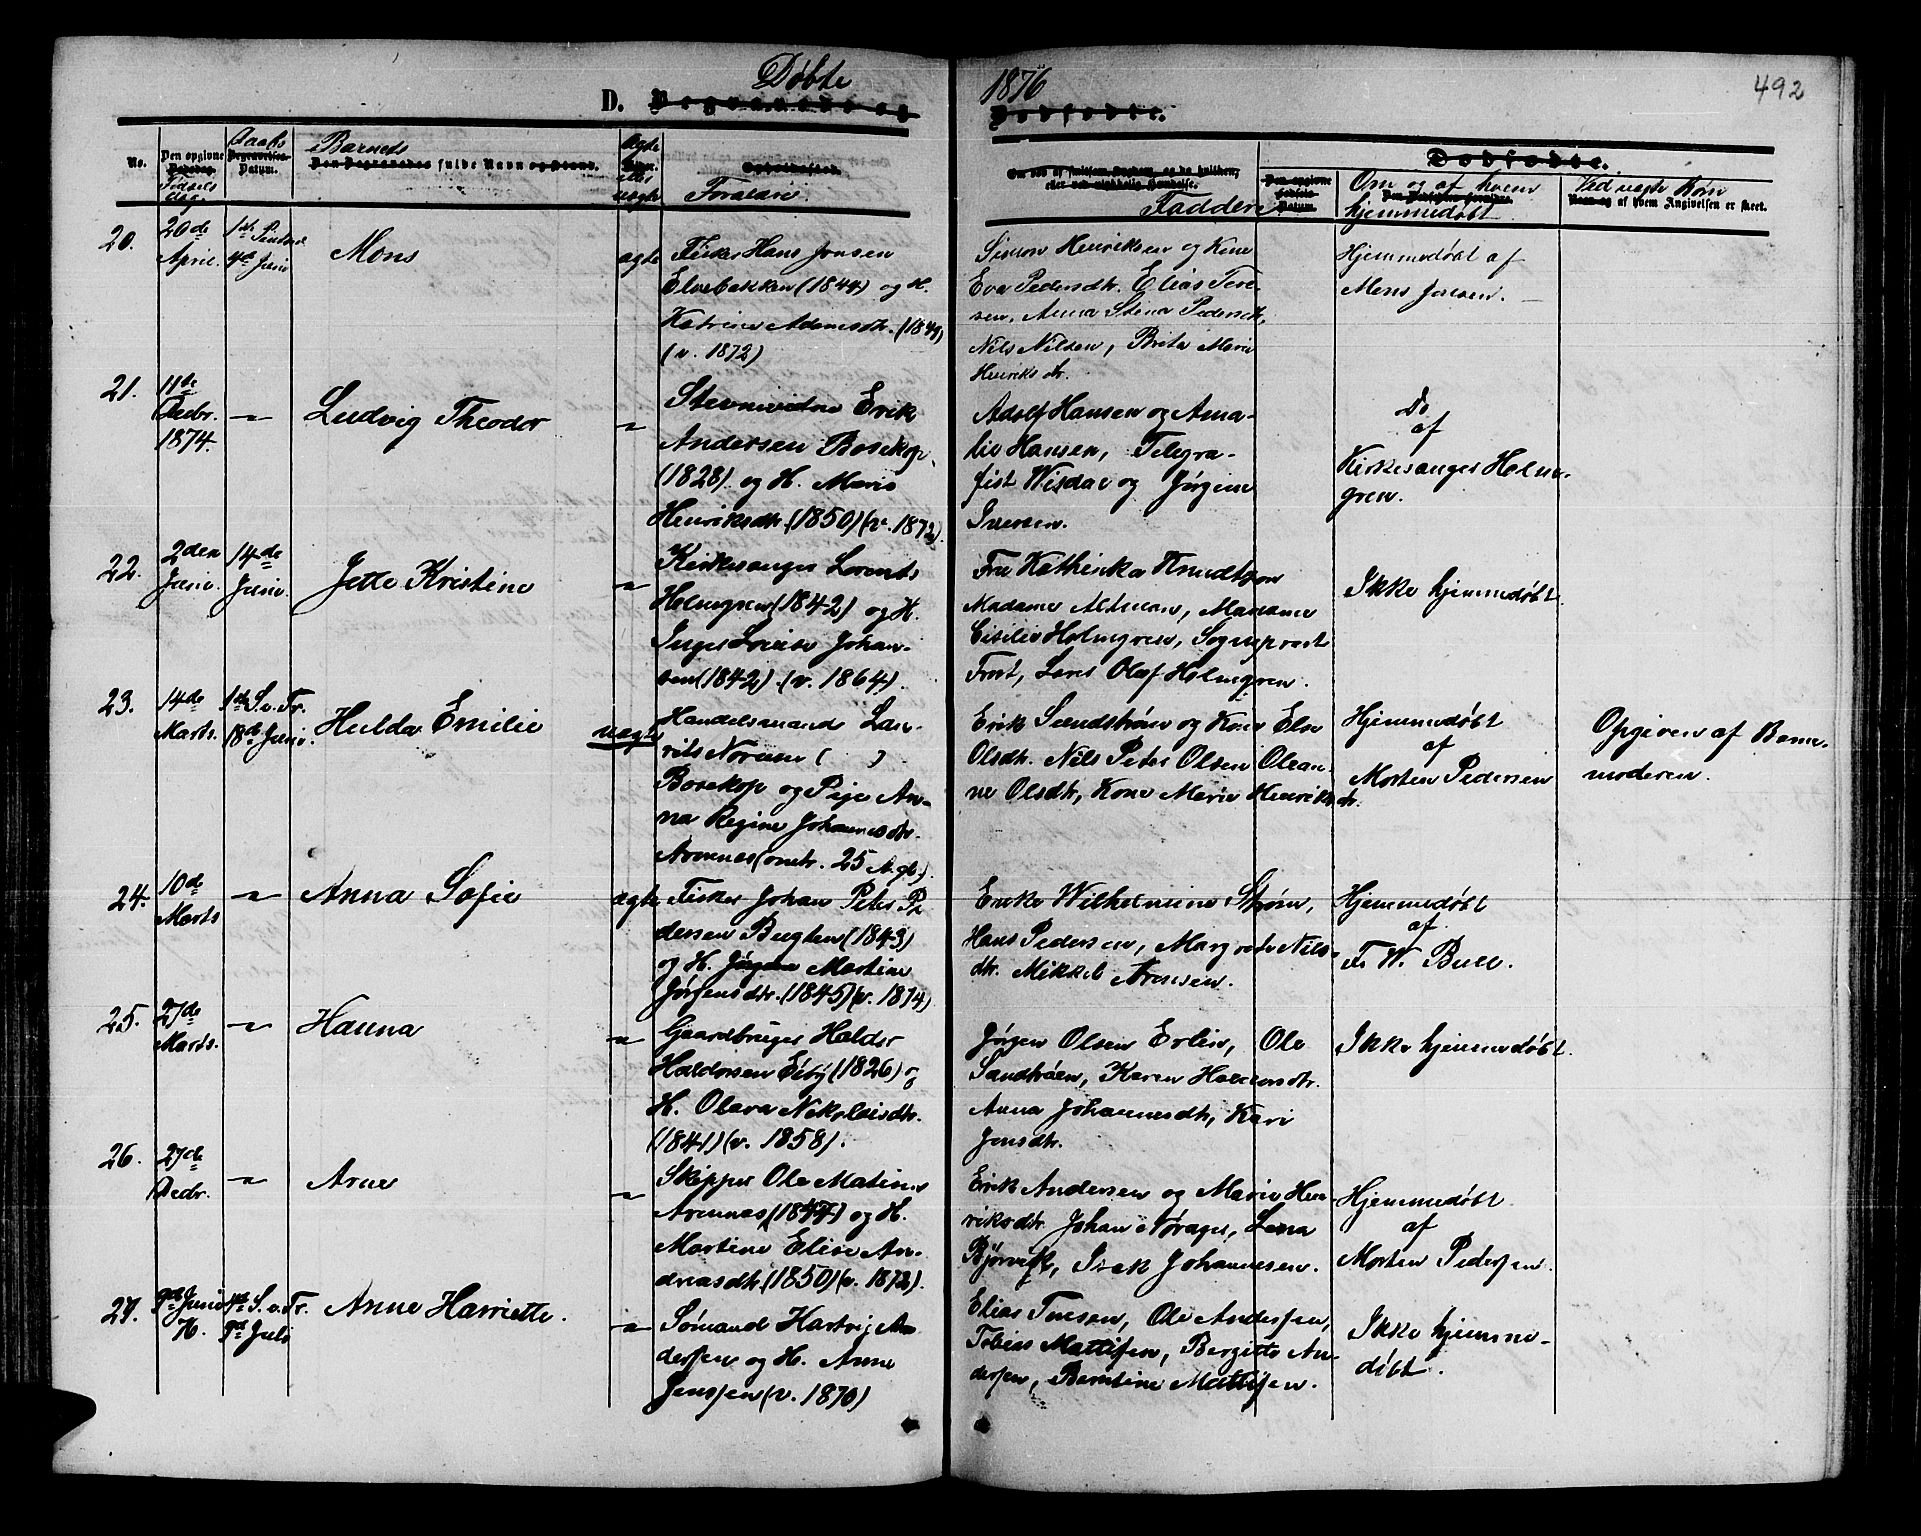 Døbte 1876 492
D. Begravede og Dødfødte.
No. Den opgivne Fødsels Dag. Daabs Datum. Barnets fulde Navn Ægte eller uægte Forældre
Faddere Om og af hvem hjemmedøbt Ved uægte Børn af hvem Angivelsen er skeet.
Dødfødte.
20. 20de April 1ste Pintsed. 4de Juni Mons ægte
Fisker Hans Jonsen
Elvebakken (1844) og H.
Katrine Adamsdtr. (1849)
(v. 1872)
Simon Henriksen og Kone
Eva Pedersdtr. Elias Iver-
sen, Anna Stina Pedersdtr,
Nils Nilsen, Brita Marie
Henriksdtr.
Hjemmedøbt af
Mons Jonsen.
21. 11te Decbr. 1874. " Ludvig Theodor "
Stevnevidne Erik
Andersen Bosekop
(1828) og H. Marie
Henriksdtr. (1850) (v. 1872).
Adolf Hansen og Ama-
lie Hansen, Telegra-
fist Wisdal og Jørgine
Iversen.
Do
af
Kirkesanger Holm-
gren.
22. 2den Juni. 14de Juni. Jette Kristine "
Kirkesanger Lorents
Holmgren (1842) og H.
Inger Lovise Johan-
sen (1842). (v. 1864).
Fru Kathinka Knudtzon
Madame Altman, Madame
Cisilie Holmgren, Sogneprest
Frost, Lars Olaf Holmgren.
Ikke hjemmedøbt.
23. 14de Marts. 1ste S. e. Tr. 18de Juni. Hulda Emilie uægte
Handelsmand Lau-
rits Norum ( )
Bosekop og Pige An-
na Regine Johannesdtr.
Aronnes (omtr. 25 A. gl.)
Erik Sundstrøm og Kone Elen
Olsdtr. Nils Peter Olsen Olean-
ne Olsdtr, Kone Marie Henriksdtr.
Hjemmedøbt
af
Morten Pedersen
Opgiven af Barne-
moderen.
24. 10de Marts " Anna Sofie ægte
Fisker Johan Peter Pe-
dersen Bugten (1843)
og H. Martine
Jørgensdtr. (1845) (v. 1874)
Erike Wilhelmine Strøm,
Hans Pedersen, Margrete Nils-
dtr. Mikkel Arnesen.
Hjemmedøbt
af
F. W. Bull.
25. 27de Marts. " Hanna "
Gaardbruger Haldor
Haldorsen Eiby (1826) og
H. Olava Nikolaisdtr.
(1841) (v. 1858).
Jørgen Olsen Erlin, Ole
Sandtrøen, Karen Haldorsdtr.
Anna Johannesdtr, Kari
Jensdtr.
Ikke hjemmedøbt.
26. 27de Decbr. " Arne "
Skipper Ole Matias
Aronnes (1844) og H.
Martine Elise An-
dreasdtr. (1850) (v. 1872).
Erik Andersen og Marie Hen-
riksdtr. Johan Norager, Lena
Bjørvik, Isak Johannesen.
Hjemmedøbt
af
Morten Pedersen.
27. 9de Juni H. 4de S. e. Tr. 9de Juli Anne Harriette. "
Sømand Hartvig An-
dersen og H. Anne
Jenssen (v. 1870)
Elias Tuesen, Ole Andersen,
Tobias Mattisen, Bergitte An-
dersen, Berntine Mattisen.
Ikke hjemme-
døbt.